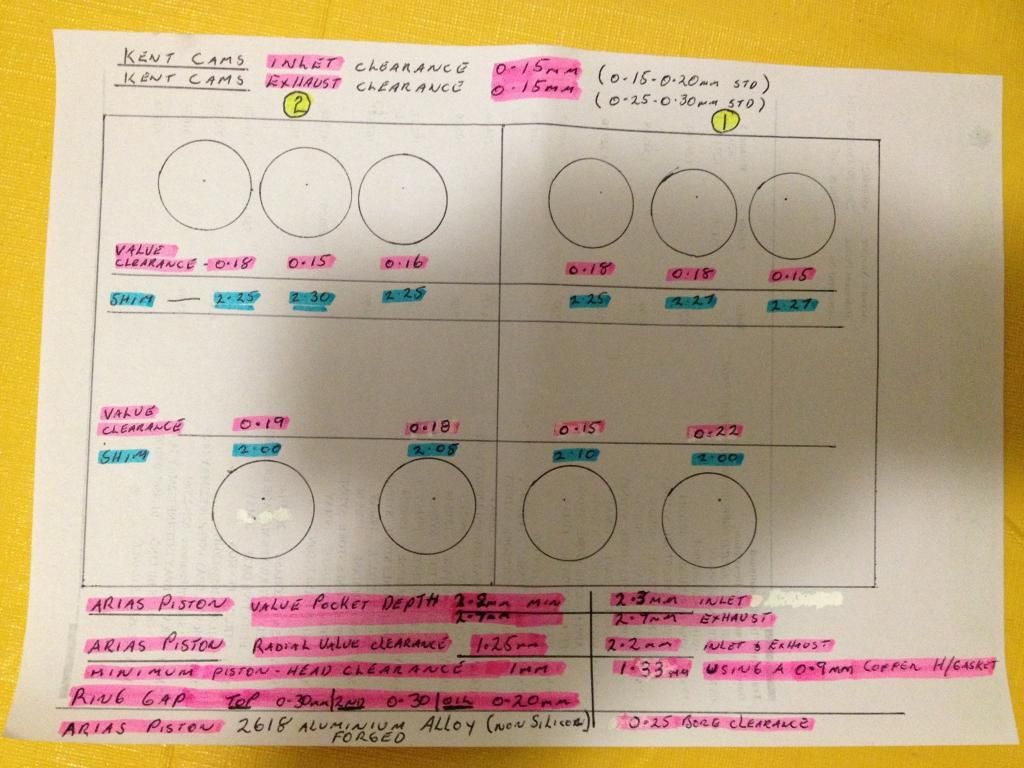 KENT CAMS INLET CLEARANCE 0.15mm (0.15-0.20mm STD)
KENT CAMS EXHAUST CLEARANCE 0.15mm (0.25-0.30mm STD)
2 1
VALUE
CLEARANCE - 0.18 0.15 0.16 0.18 0.18 0.15
SHIM — 2.25 2.30 2.25 2.25 2.27 2.27
VALUE
CLEARANCE 0.19 0.18 0.15 0.22
SHIM 2.00 2.08 2.10 2.00
ARIAS PISTON VALUE POCKET DEPTH MIN 2.3mm INLET
2.7mm 2.7mm EXHAUST
ARIAS PISTON RADIAL VALUE CLEARANCE 1.25mm 2.2mm INLET & EXHAUST
MINIMUM PISTON-HEAD CLEARANCE 1mm 1.33mm USING A 0.9mm COPPER H/GASKET
RING GAP TOP 0.30mm/2ND 0.30/OIL 0.20mm
ARIAS PISTON 2618 ALUMINIUM ALLOY (NON SILICON) 0.25 BORE CLEARANCE
FORGED